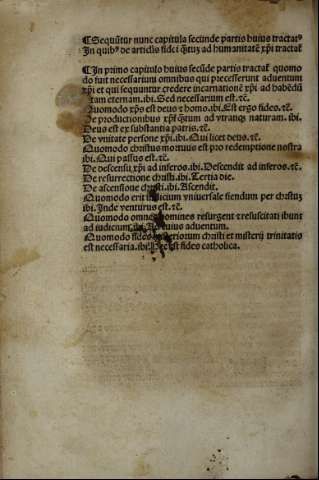 ¶Sequũtur nunc capitula secunde partis huius tractatꝰ
In quibꝰ de articlis fidei q̃tuʒ ad humanitatẽ xp̃i tractat̃
¶In primo capitulo huius secũde partis tractat̃ quomo
do fuit necessarium omnibus qui precesserunt aduentum
xp̃i et qui sequuntur credere incarnationẽ xp̃i ad habẽdũ
tam eternam .ibi. Sed necessarium est.ꝛc̃.
Quomodo xp̃us est deus ⁊ homo .ibi. Est ergo fides.ꝛc̃.
De productionibus xp̃i q̃tum ad vtramqʒ naturam. ibi.
Deus est ex substantia patris.ꝛc̃.
De vnitate persone xp̃i. ibi. Qui licet deus.ꝛc̃.
Quomodo christus mortuus est pro redemptione nostra
ibi. Qui passus est.ꝛc̃.
De descensu xp̃i ad inferos .ibi. Descendit ad inferos.ꝛc̃.
De resurrectione christi .ibi. Tertia die.
De ascensione christi .ibi. Ascendit.
Quomodo erit iudicium vniuersale fiendum per christũ
ibi. Inde venturus est.ꝛc̃.
Quomodo omnes homines resurgent ⁊ resuscitati ibunt
ad iudicium .ibi. Ad cuius aduentum.
Quomodo fides misteriorum christi et misterij trinitatis
est necessaria. ibi. Hec est fides catholica.